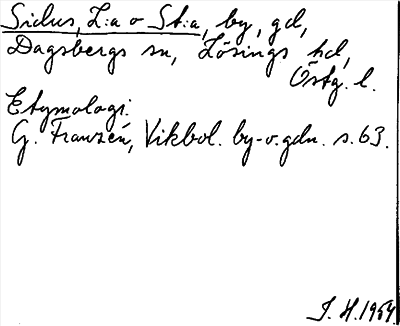 Sidus, L:a o St:a, by, gd,
Dagsbergs sn, Lösings hd,
Östg. l.
Etymologi.
G. Franzén, Vikbol. by- o. gdn. s. 63.
J. H. 1954.